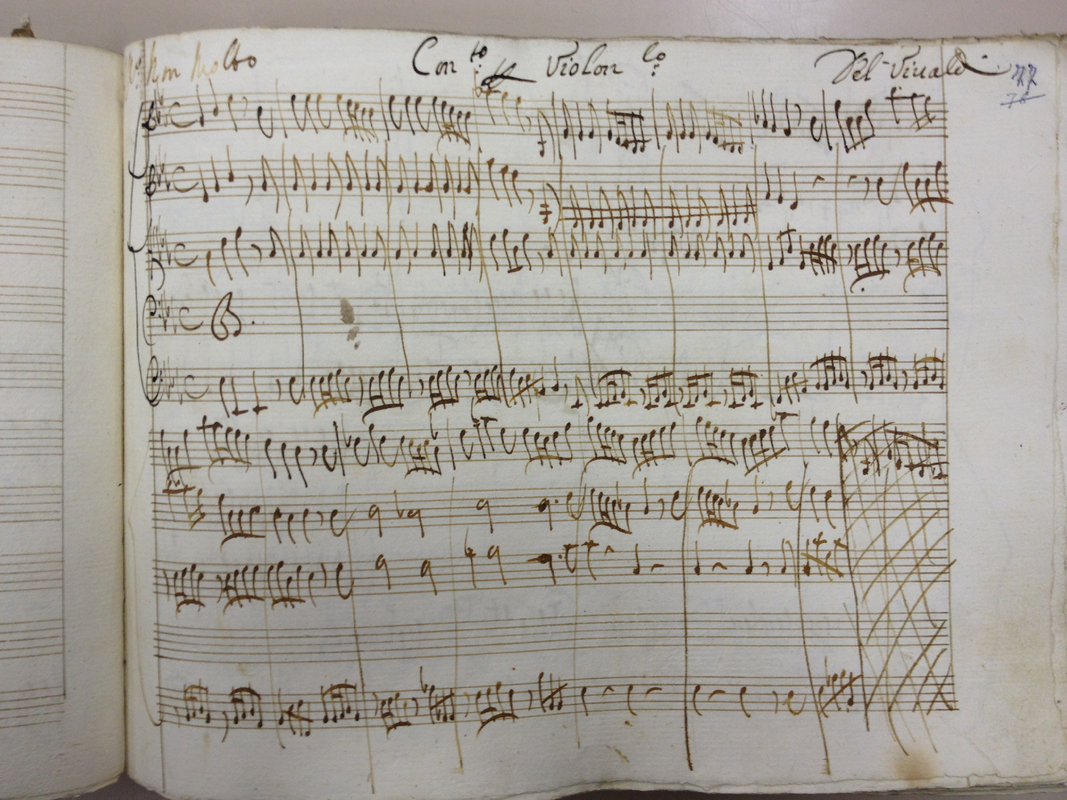 All.º Non Molto Con.to p. Violon.lo Del Viualdi 77